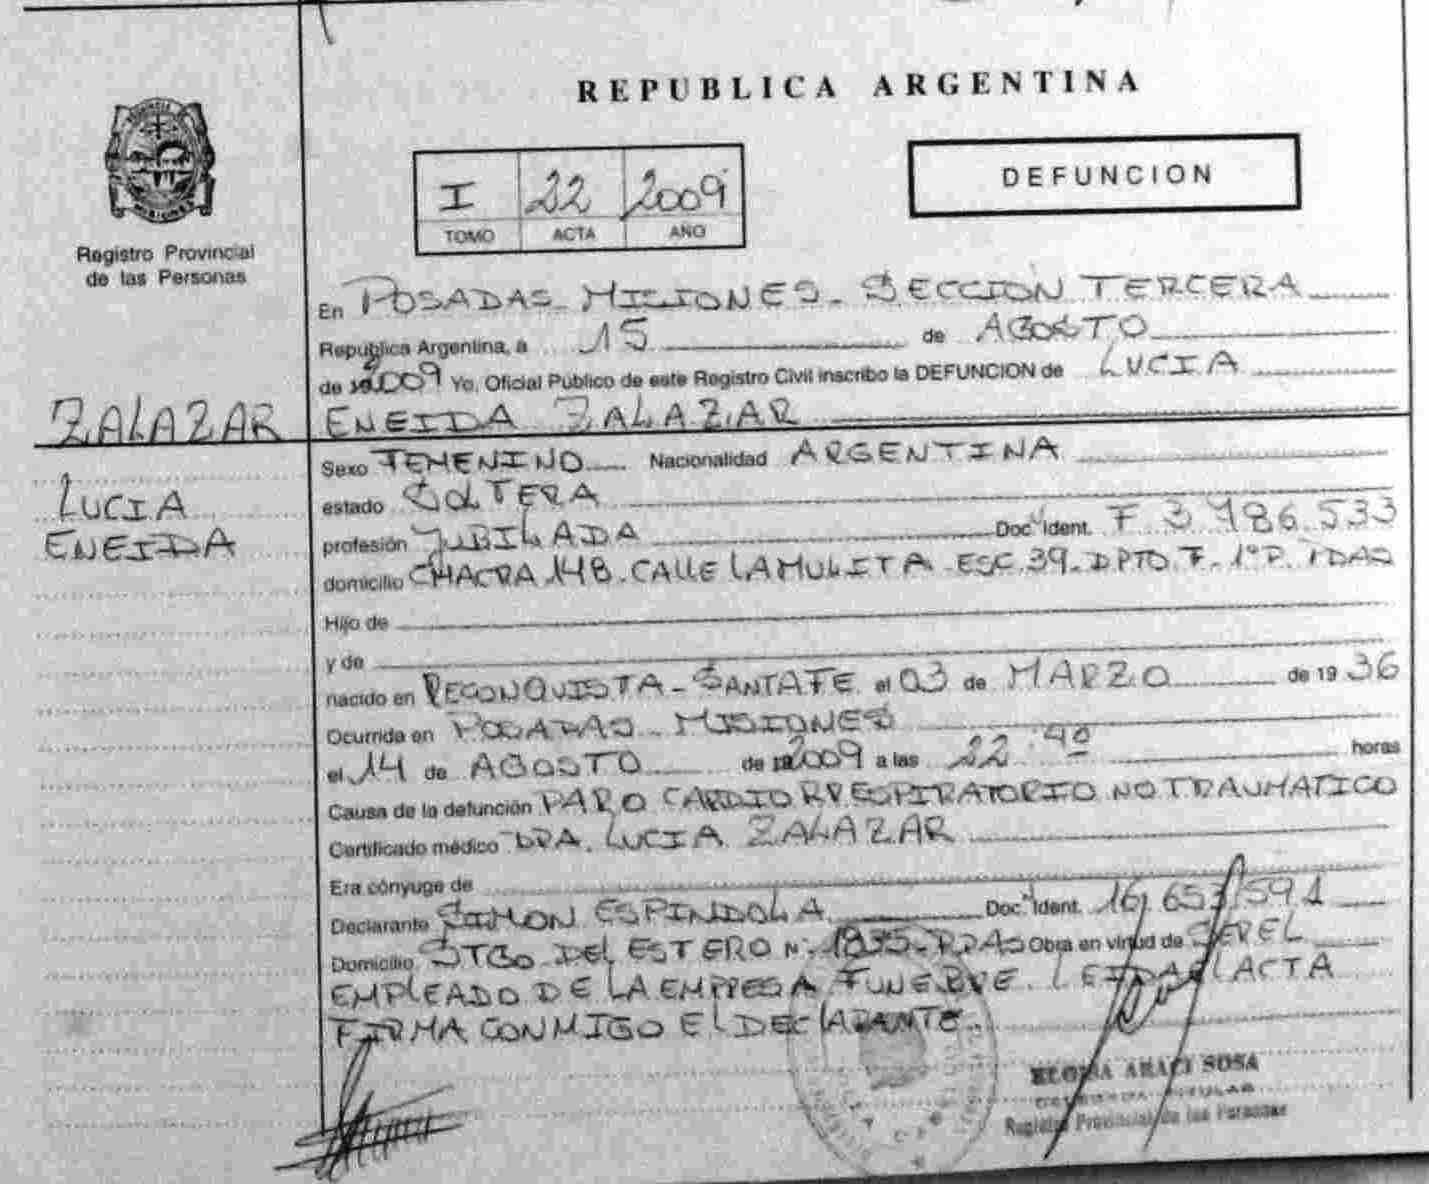 REPUBLICA ARGENTINA
DEFUNCION
I 22 2009
TOMO ACTA AÑO
Registro Provincial
de las Personas
En POSADAS-MISIONES-SECCION TERCERA
Republica Argentina, a 15 de AGOSTO
de 2009 Yo, Oficial Público de este Registro Civil inscribo la DEFUNCION de LUCIA
ENEIDA ZALAZAR
ZALAZAR
LUCIA
ENEIDA
Sexo FEMENINO Nacionalidad ARGENTINA
estado SOLTERA
profesión JUBILADA Doc. Ident. F 3.786.533
domicilio CHACRA 148. CALLE LA MULITA ESC. 39. DPTO F. 1º P. PDAS
Hijo de
y de
nacido en RECONQUISTA-SANTA FE el 03 de MARZO de 19 36
Ocurrida en POSADAS MISIONES
el 14 de AGOSTO de 2009 a las 22 horas
Causa de la defunción PARO CARDIORRESPIRATORIO NO TRAUMATICO
Certificado médico DRA. LUCIA ZALAZAR
Era cónyuge de
Declarante SIMON ESPINDOLA Doc. Ident. 16.653.591
Domicilio STGO DEL ESTERO Nº 1835-PDAS Obra en virtud de SER EL
EMPLEADO DE LA EMPRESA FUNEBRE. LEIDA EL ACTA
FIRMA CONMIGO EL DECLARANTE.
ARACI SOSA
Registro Provincial de las Personas